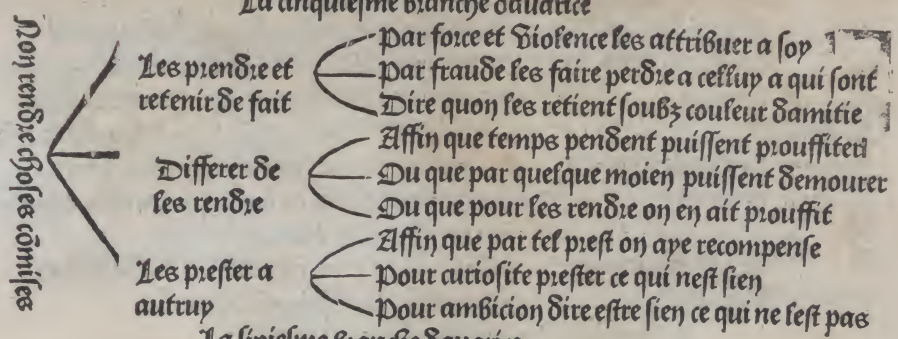 La cinquiesme branche dauarice
Non rendre choses cōmises
Les prendre et
retenir de fait
Par force et violence les attribuer a soy
Par fraude les faire perdre a celluy a qui sont
Dire quon les retient soubz couleur damitie
Differer de
les rendre
Affin que temps pendent puissent prouffiter
Ou que par quelque moien puissent demourer
Ou que pour les rendre on en ait prouffit
Les prester a
autruy
Affin que par tel prest on aye recompense
Pour curiosite prester ce qui nest sien
Pour ambicion dire estre sien ce qui ne lest pas
La sixiesme branche dauarice